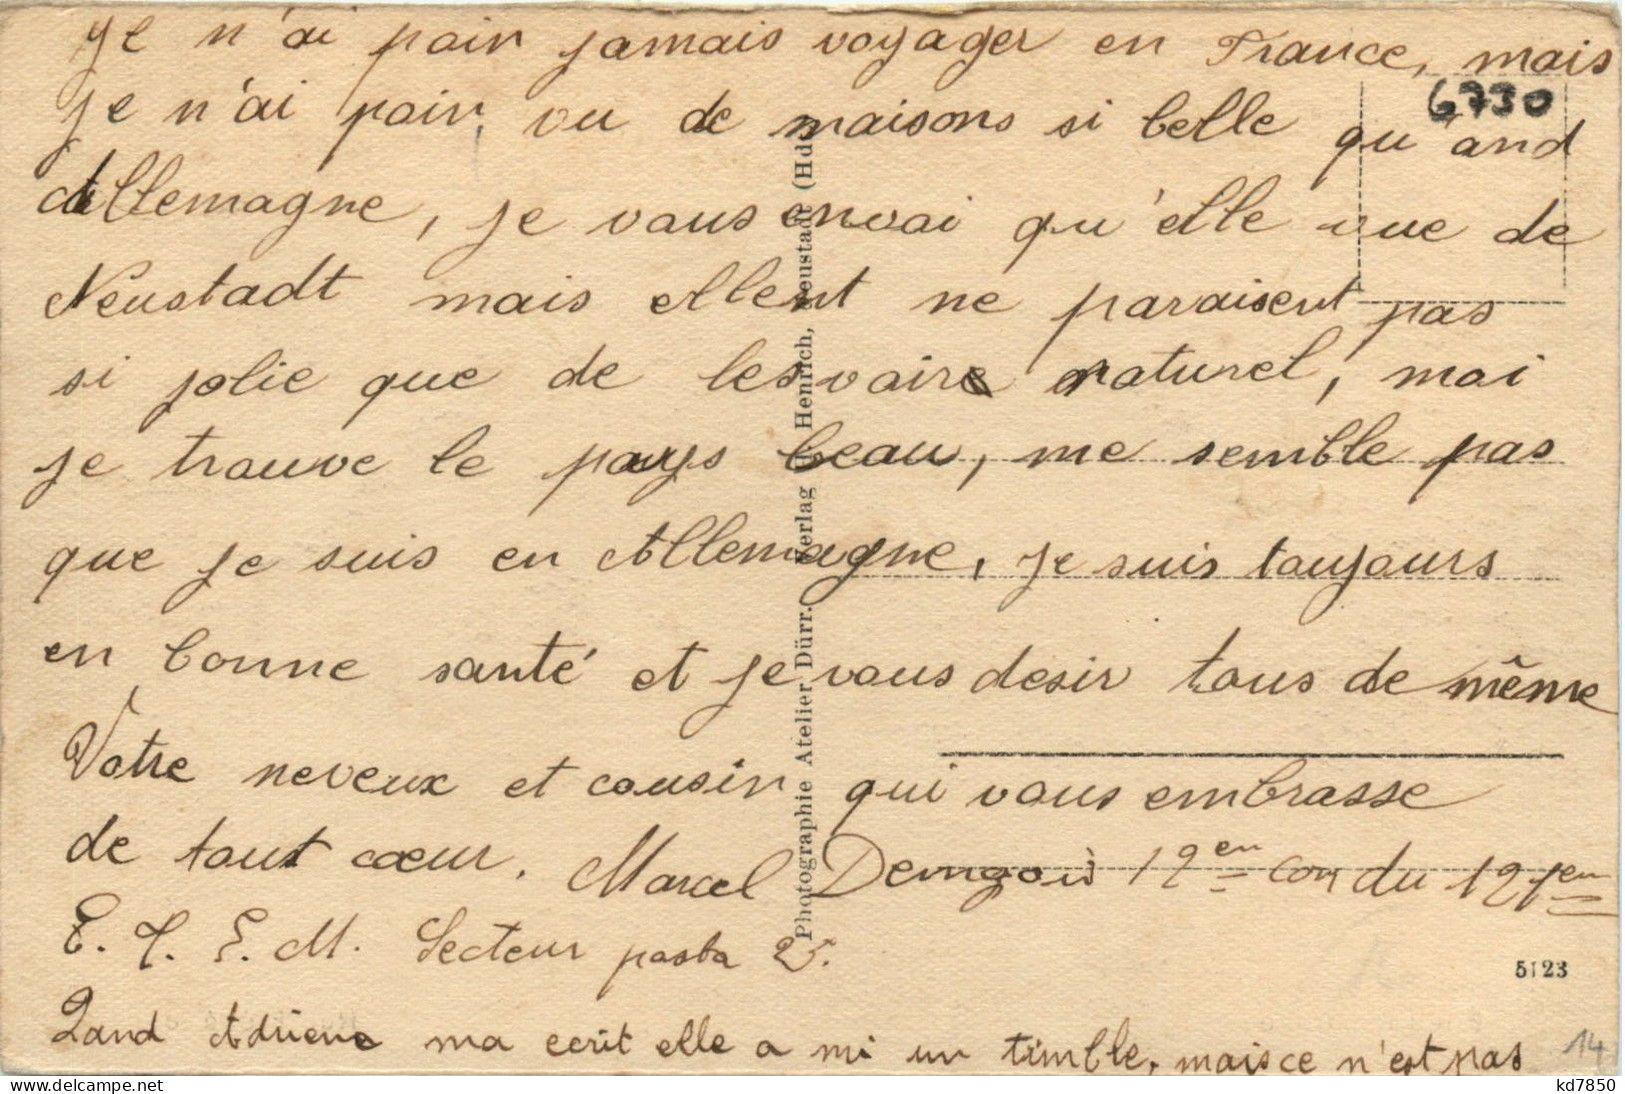 Je n'ai pair jamais voyager en France, mais
je n'ai pair, vu de maisons si belle qu'and
Allemagne, je vous envoai qu'elle vue de
Neustadt mais ellent ne paraisent pas
si jolie que de les vaire naturel, moi
je trouve le pays beau, me semble pas
que je suis en Allemagne, je suis toujours
en bonne santé et je vous desir tous de même
Votre neveux et cousin qui vous embrasse
de tout cœur. Marcel 12en du 121em
E. T. E. M. Secteur posta 25.
Qand Adriene ma ecrit elle a mi un timble, mais ce n'est pas
6730
Photographie Atelier Dürr. Verlag Henrich, Neustadt (Hdt
5123
14
kd7850